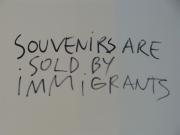 SOUVENIRS ARE
SOLD BY
IMMIGRANTS